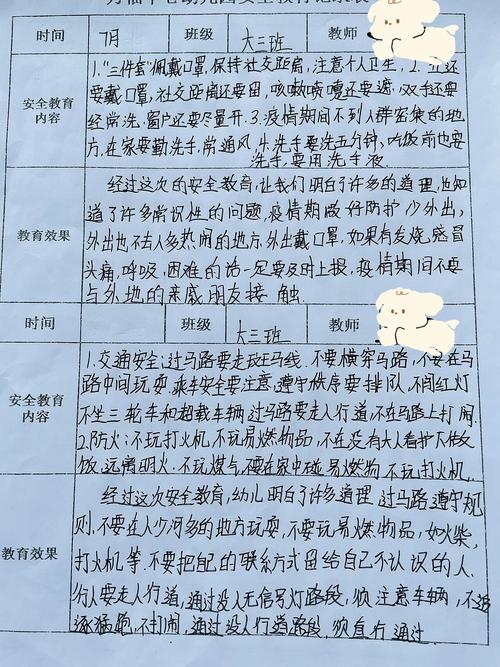 中心幼儿园安全教育记录表
时间 7月 班级 大三班 教师
安全教育内容
1."三件套"佩戴口罩,保持社交距离,注意个人卫生,2.
要戴口罩,社交距离还要留,咳嗽喷嚏还要遮,双手还要
经常洗,窗户还要尽量开.3.疫情期间不到人群密集的地
方,在家要勤洗手,常通风.4.洗手要洗五分钟,吃饭前也要
洗手,要用洗手液
教育效果
经过这次的安全教育,让我们明白了许多的道理,也知
道了许多常识性的问题,疫情期间做好防护,少外出,
外出也不去人多热闹的地方,外出戴口罩,如果有发烧,感冒
头痛,呼吸,困难的话一定要及时上报,疫情期间不要
与外地的亲戚朋友接触.
时间 班级 大三班 教师
安全教育内容
1.交通安全:过马路要走斑马线.不要横穿马路,不要在马
路中间玩耍.乘车安全要注意,遵守秩序要排队,不闯红灯
不坐三轮车和超载车辆,过马路要走人行道,不在马路上打闹.
2.防火:不玩打火机,不玩易燃物品,不在没有大人看护下做
饭,远离明火.不玩煤气,不要在家中碰易燃物 不玩打火机.
教育效果
经过这次安全教育,幼儿明白了许多道理 过马路遵守规
则.不要在人少河多的地方玩耍,不要玩易燃物品,如火柴,
打火机等.不要把自己的联系方式留给自己不认识的人.
行人要走人行道,通过没人无信号灯路段,须注意车辆,不追
逐猛跑,不打闹,通过没人行道路段,须自行通过